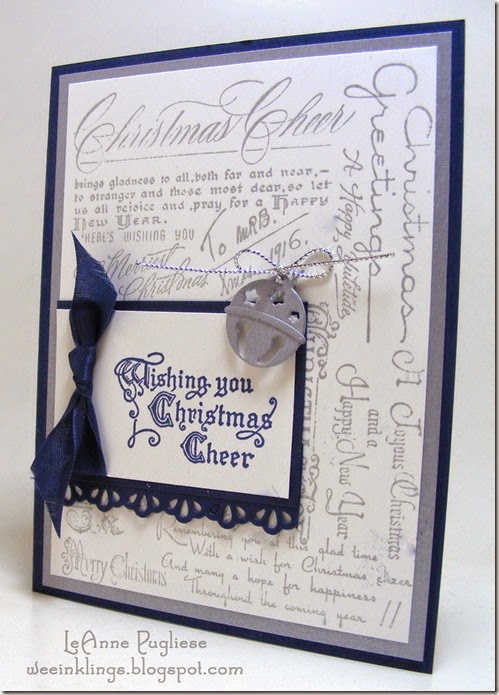 Christmas Cheer
brings gladness to all, both far and near,—
to stranger and those most dear, so let
us all rejoice and pray for a Happy
New Year.
"HERE'S WISHING YOU
Merriest
Christmas
To Mr B.
Xmas 1916.
Christmas
Greetings
A Happy Yuletide
A Joyous Christmas
and a
Happy New Year
Wishing you
Christmas
Cheer
Merry Christmas
Remembering you at this glad time
With a wish for Christmas cheer
And many a hope for happiness
Throughout the coming year !!
LeAnne Pugliese
weeinklings.blogspot.com